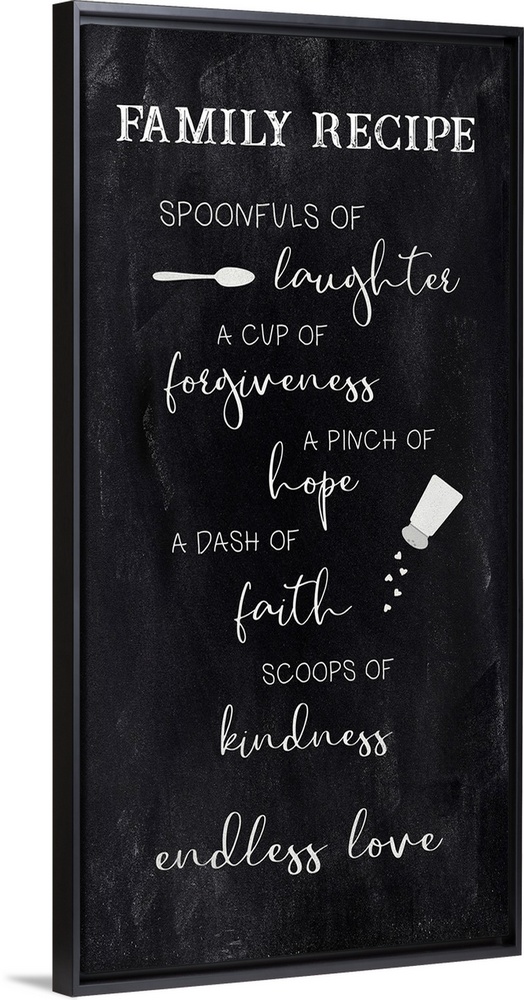 FAMILY RECIPE
SPOONFULS OF
laughter
A CUP OF
forgiveness
A PINCH OF
hope
A DASH OF
faith
SCOOPS OF
kindness
endless love